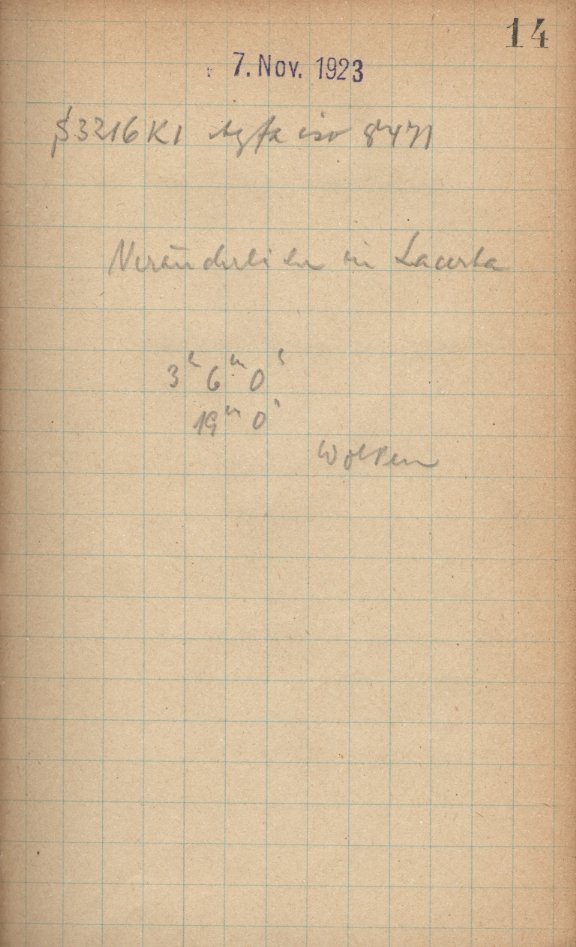 14
7. Nov. 1923
S3216K1 Agfa iso 8471
Veränderliche in Lacerta
3ʰ 6ᵐ 0ˢ
19ᵐ 0ˢ
Wolken